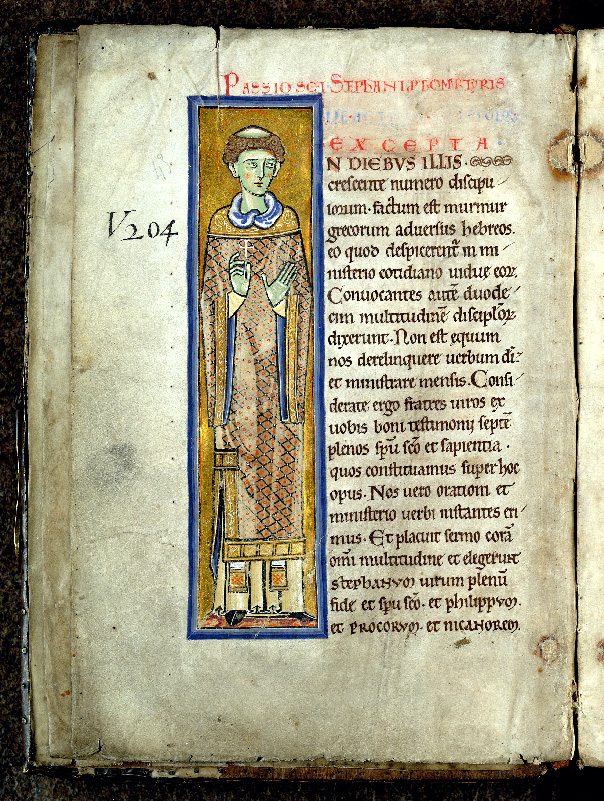 PASSIO SCI STEPHANI PTOMRTYRIS
EXCEPTA
V204
N DIEBVS ILLIS.
crescente numero discipu
lorum. factum est murmur
grecorum aduersus hebreos.
eo quod despicerent̄ in mi
nisterio cotidiano uidue eoꝝ.
Conuocantes autē duode
cim multitudinē disciploꝝ
dixerunt. Non est equum
nos derelinquere uerbum dī
et ministrare mensis. Consi
derate ergo fratres uiros ex
uobis boni testimonij septē
plenos spū scō et sapientia.
quos constituamus super hoc
opus. Nos uero orationi et
ministerio uerbi instantes eri
mus. Et placuit sermo corā
om̄i multitudine et elegerunt
stephanum uirum plenū
fide et spū scō. et philippum.
et procorum. et nicanorem.